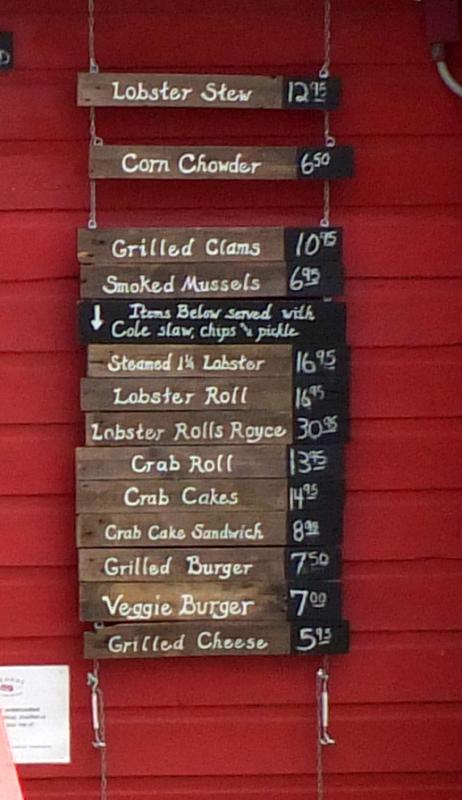 Lobster Stew 12.95
Corn Chowder 6.50
Grilled Clams 10.95
Smoked Mussels 6.95
Items Below served with
Cole slaw, chips 'n pickle
Steamed 1¼ Lobster 16.95
Lobster Roll 16.95
Lobster Rolls Royce 30.95
Crab Roll 13.95
Crab Cakes 14.95
Crab Cake Sandwich 8.95
Grilled Burger 7.50
Veggie Burger 7.00
Grilled Cheese 5.95